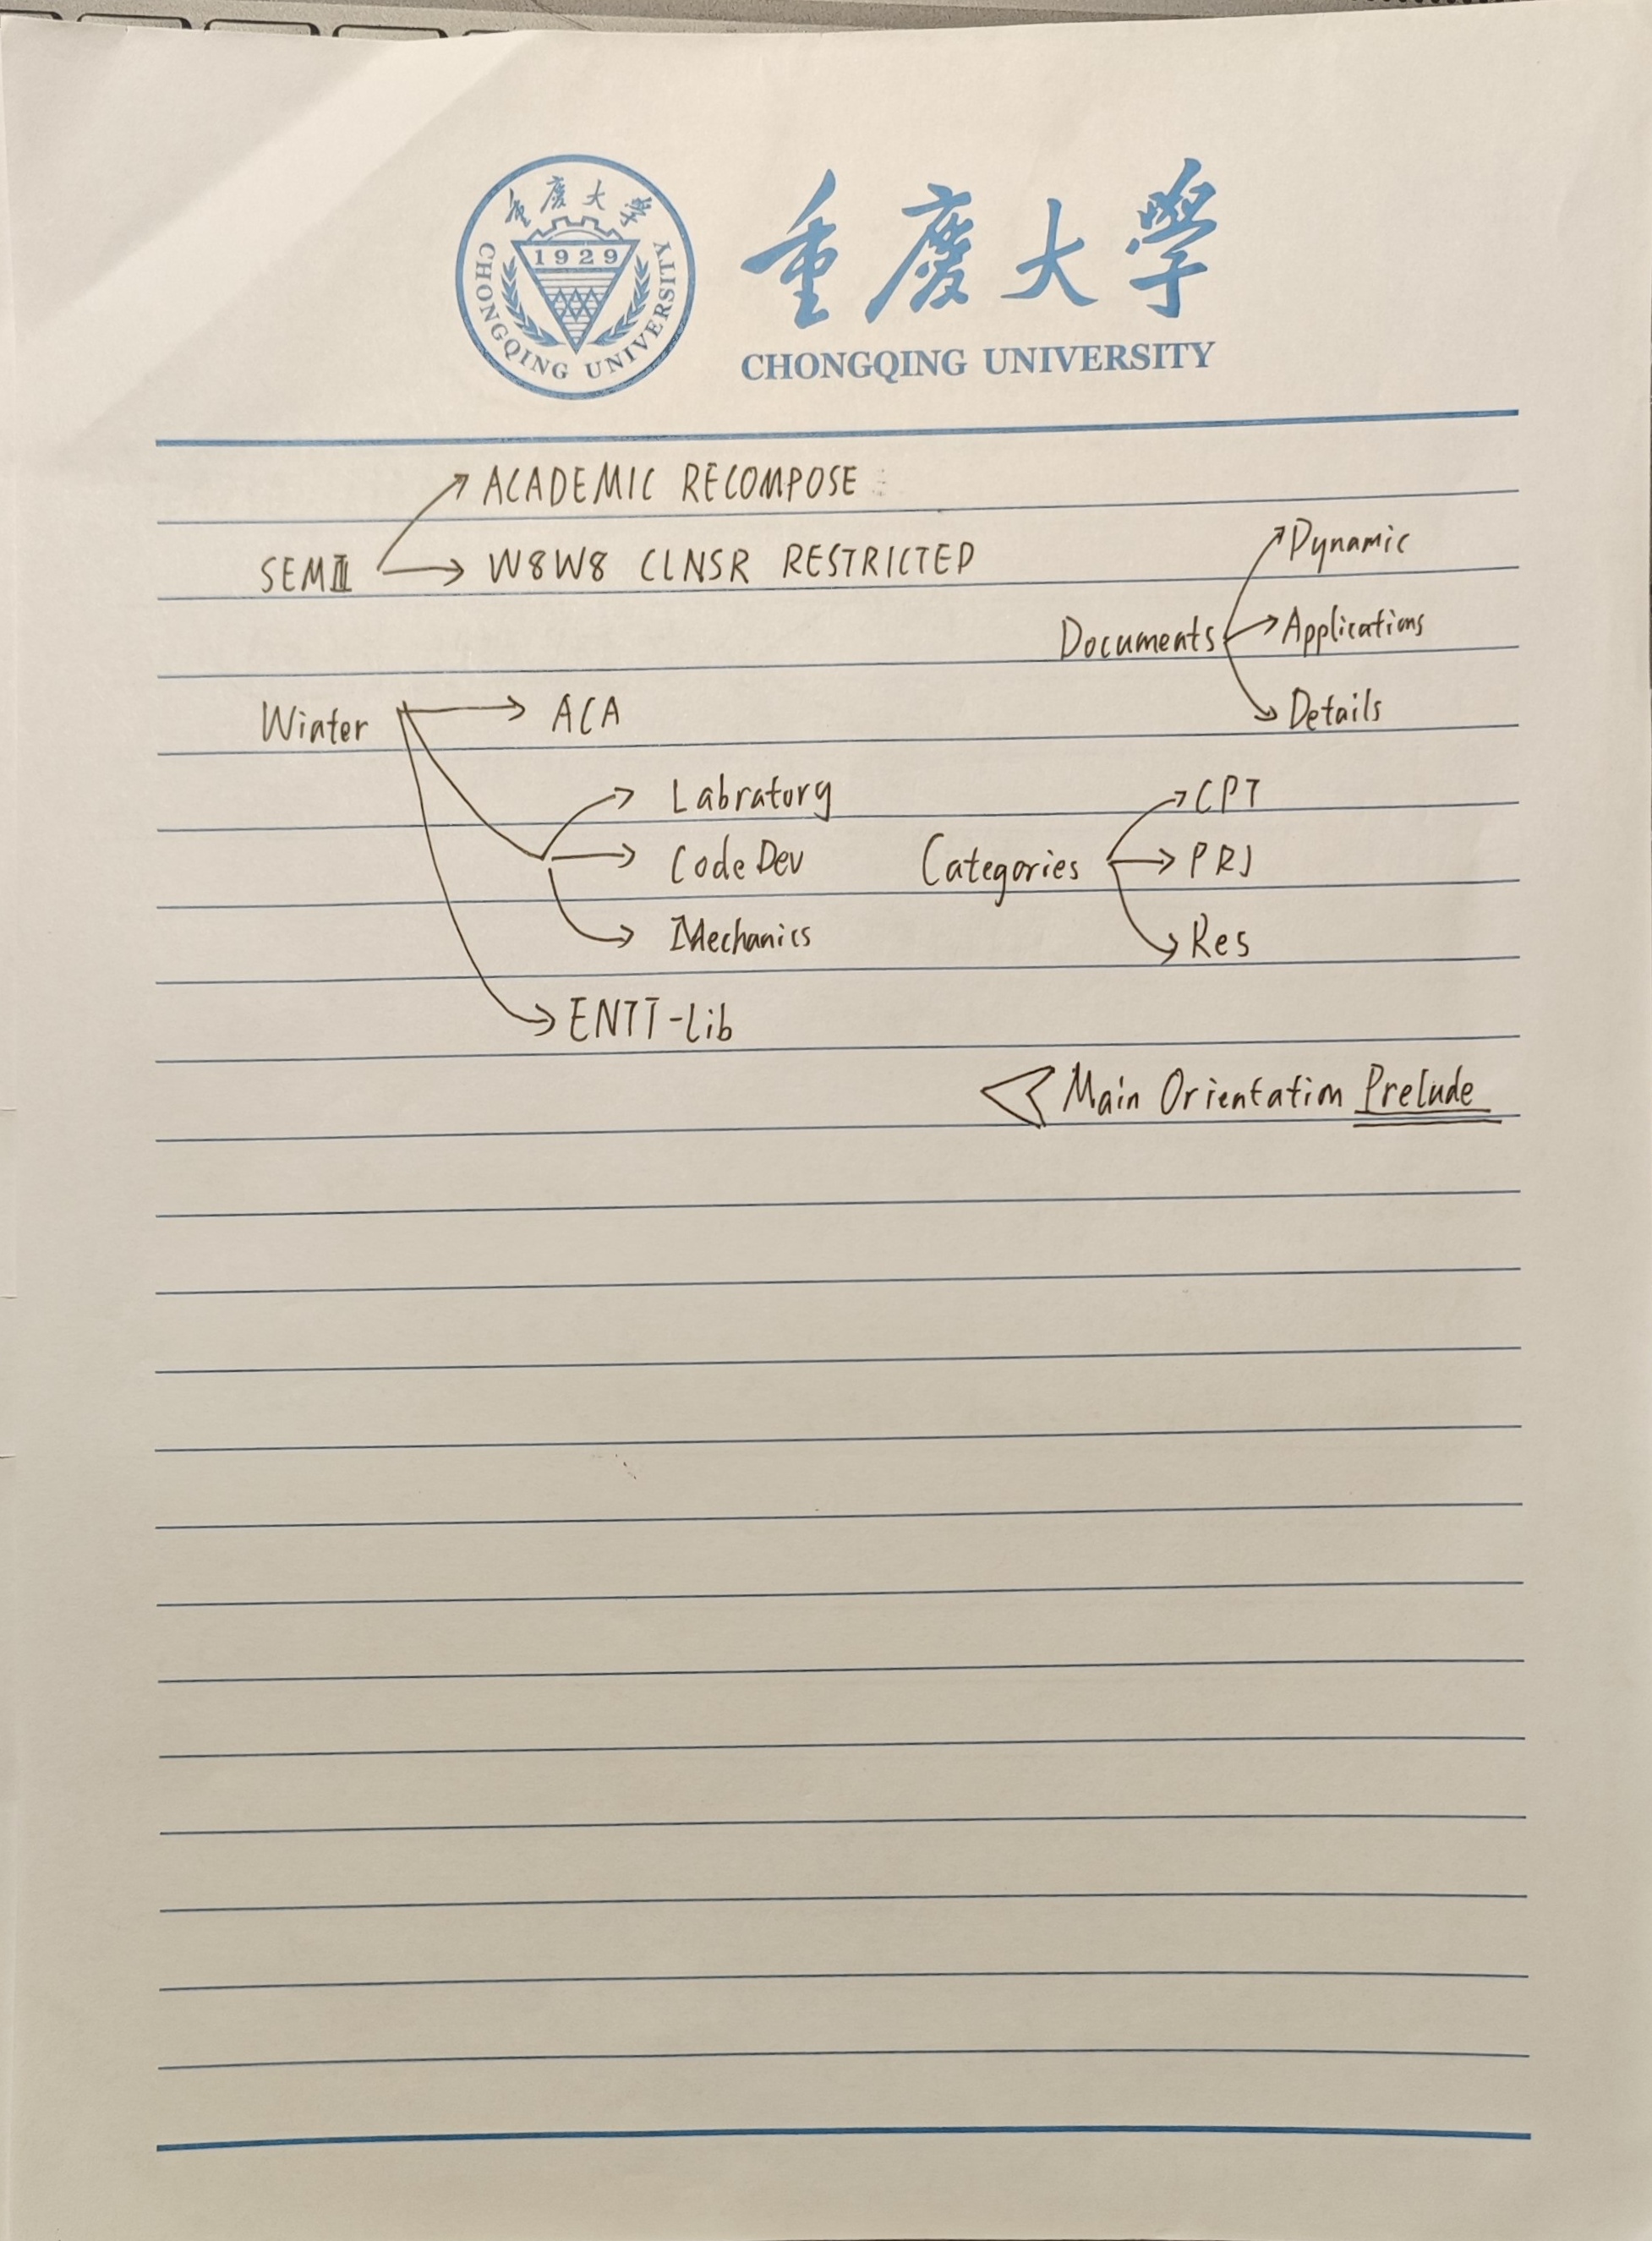 重慶大學
1929
CHONGQING UNIVERSITY
重慶大學
CHONGQING UNIVERSITY
ACADEMIC RECOMPOSE
SEM W8W8 CLNSR RESTRICTED
Dynamic
Documents Applications
Details
Winter ACA
Labratory
CodeDev
Mechanics
ENTT-Lib
CPT
Categories PRJ
Res
Main Orientation Prelude